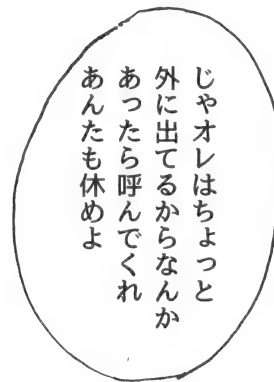 じゃオレはちょっと
外に出てるからなんか
あったら呼んでくれ
あんたも休めよ